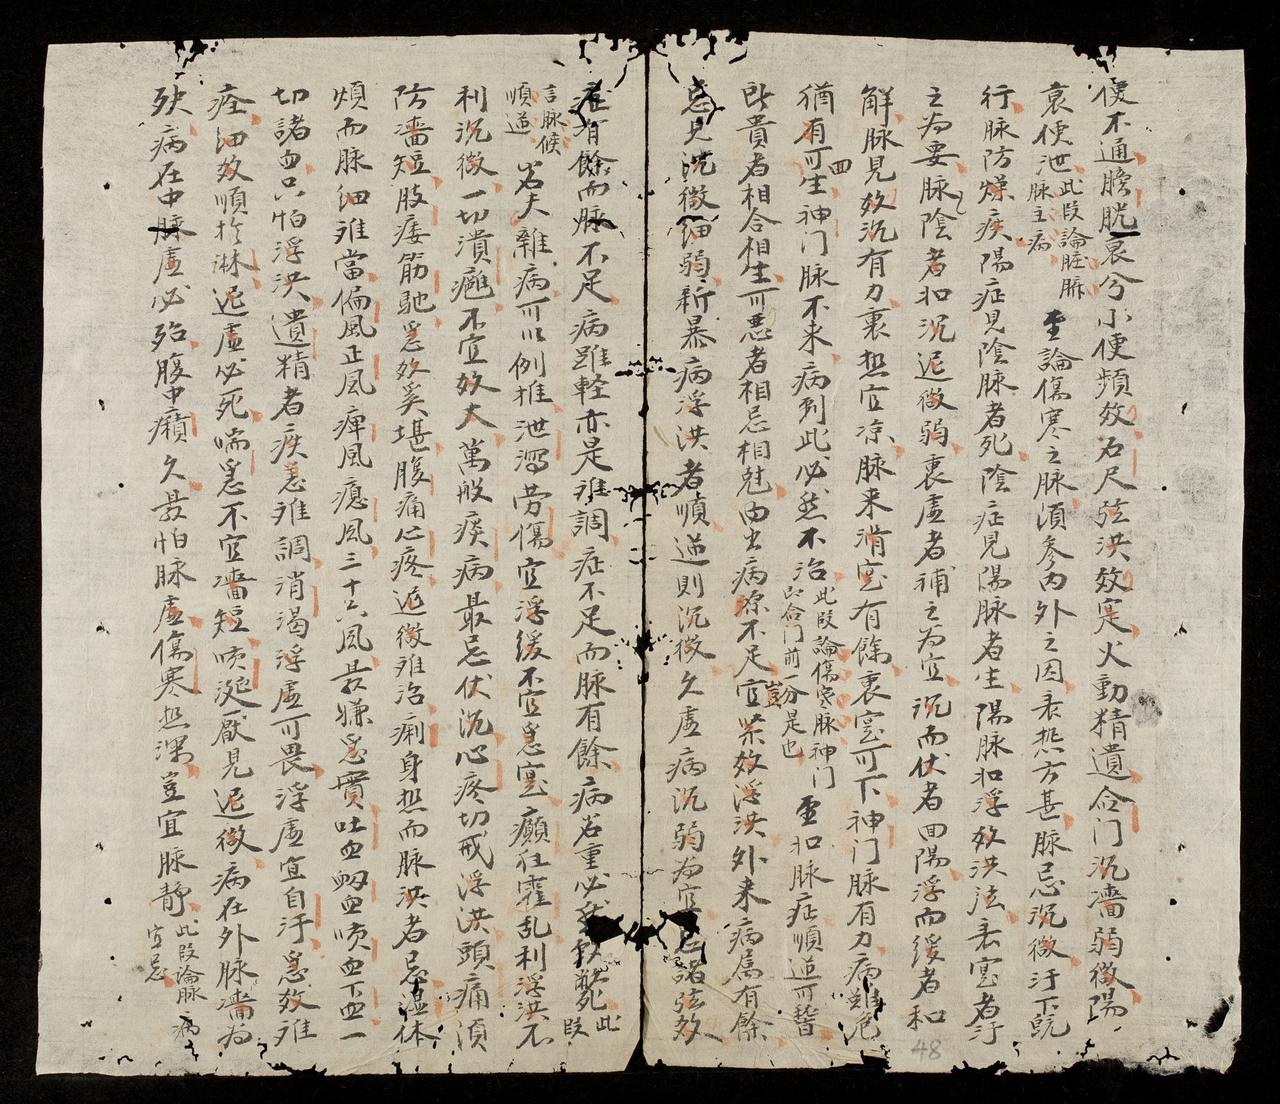 便不通膀胱裏兮小便頻数右尺弦洪数寔火動精遺命门沉濇弱微陽
衰便泄此段論脏腑脉主病至論傷寒之脉須參內外之因表热方甚脉忌沉微汗下既
行脉防燥疾陽症見陰脉者死陰症見陽脉者生陽脉如浮数洪法表寔者汗
之为要脉陰者如沉迟微弱裏虚者補之为宜沉而伏者回陽浮而缓者和
解脉見数沉有力裏热宜凉脉来滑寔有餘裏寔可下神门脉有力病雖危
猶有可生神门脉不来病到此必然不治此段論傷寒脉神门即命门前一分是也至如脉症順逆可皆
貴者相合相生可恶者相忌相尅由出病源不足豈宜紧数浮洪外来病属有餘
忌見沉微细弱新暴病浮洪者順逆則沉微久虚病沉弱为宜忌諸弦数
症有餘而脉不足病雖軽亦是难調症不足而脉有餘病若重必然救死此段
言脉候順逆若夫雜病可以例推泄瀉劳傷宜浮缓不宜急寔癲狂霍乱利浮洪不
利沉微一切潰癰不宜数大萬般痰病最忌伏沉心疼切戒浮洪頭痛須
防濇短肢痿筋馳急数奚堪腹痛心疼迟微难治痢身热而脉洪者忌湿体
煩而脉细难當偏風正風痺風瘛風三十六風最嫌急實吐血衂血唾血下血一
切諸血只怕浮洪遺精者疾急难調消渴浮虚可畏浮虚宜自汗急数难
痊细数順於淋迟虚必死喘急不宜濇短唾涎厭見迟微病在外脉濇为
殃病在中脉虚必殆腹中癪久最怕脉虚傷寒热深豈宜脉静此段論脉宜忌病
48